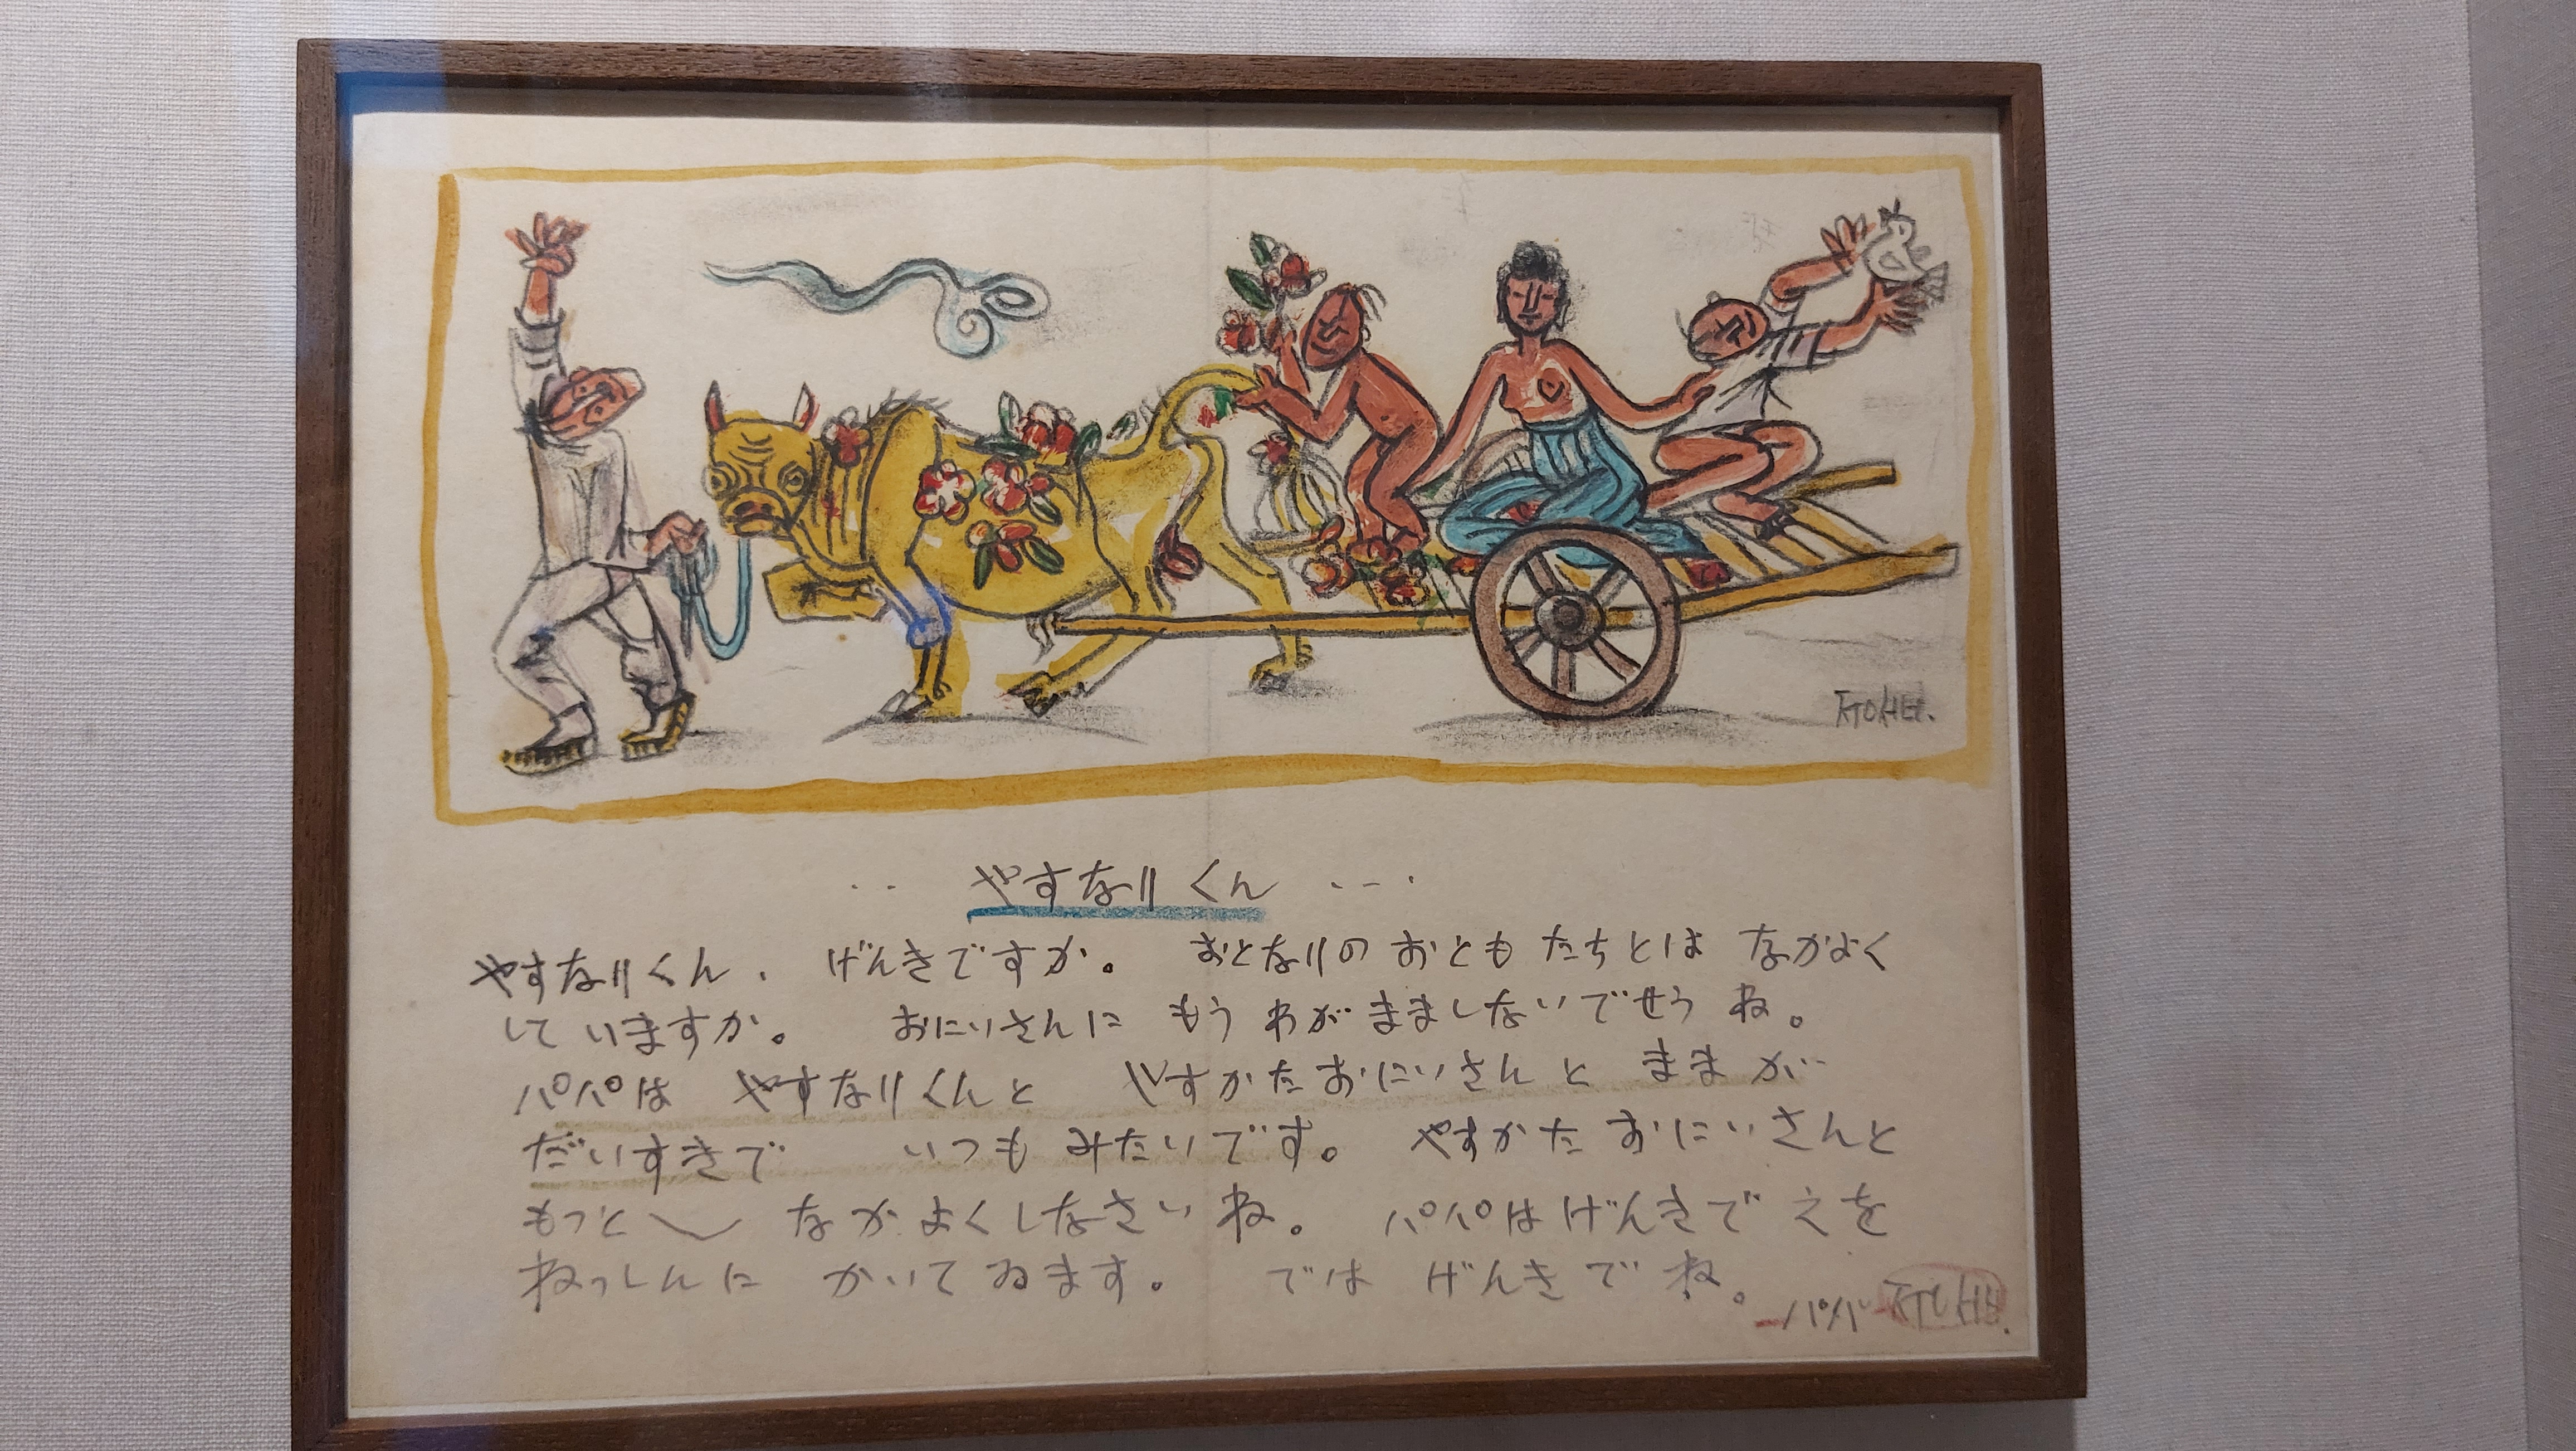 ㅈㅜㅇㅅㅓㅂ
やすなりくん
やすなりくん. げんきですか。 おとなりの おともたちとは なかよく
していますか。 おにいさんに もう わがまましないでせう ね。
パパは やすなりくんと やすかたおにいさんと ままが
だいすきで いつも みたいです。 やすかた おにいさんと
もっと〱 なかよくしなさい ね。 パパはげんきで えを
ねっしんに かいてゐます。 では げんきで ね。
パパ ㅈㅜㅇㅅㅓㅂ